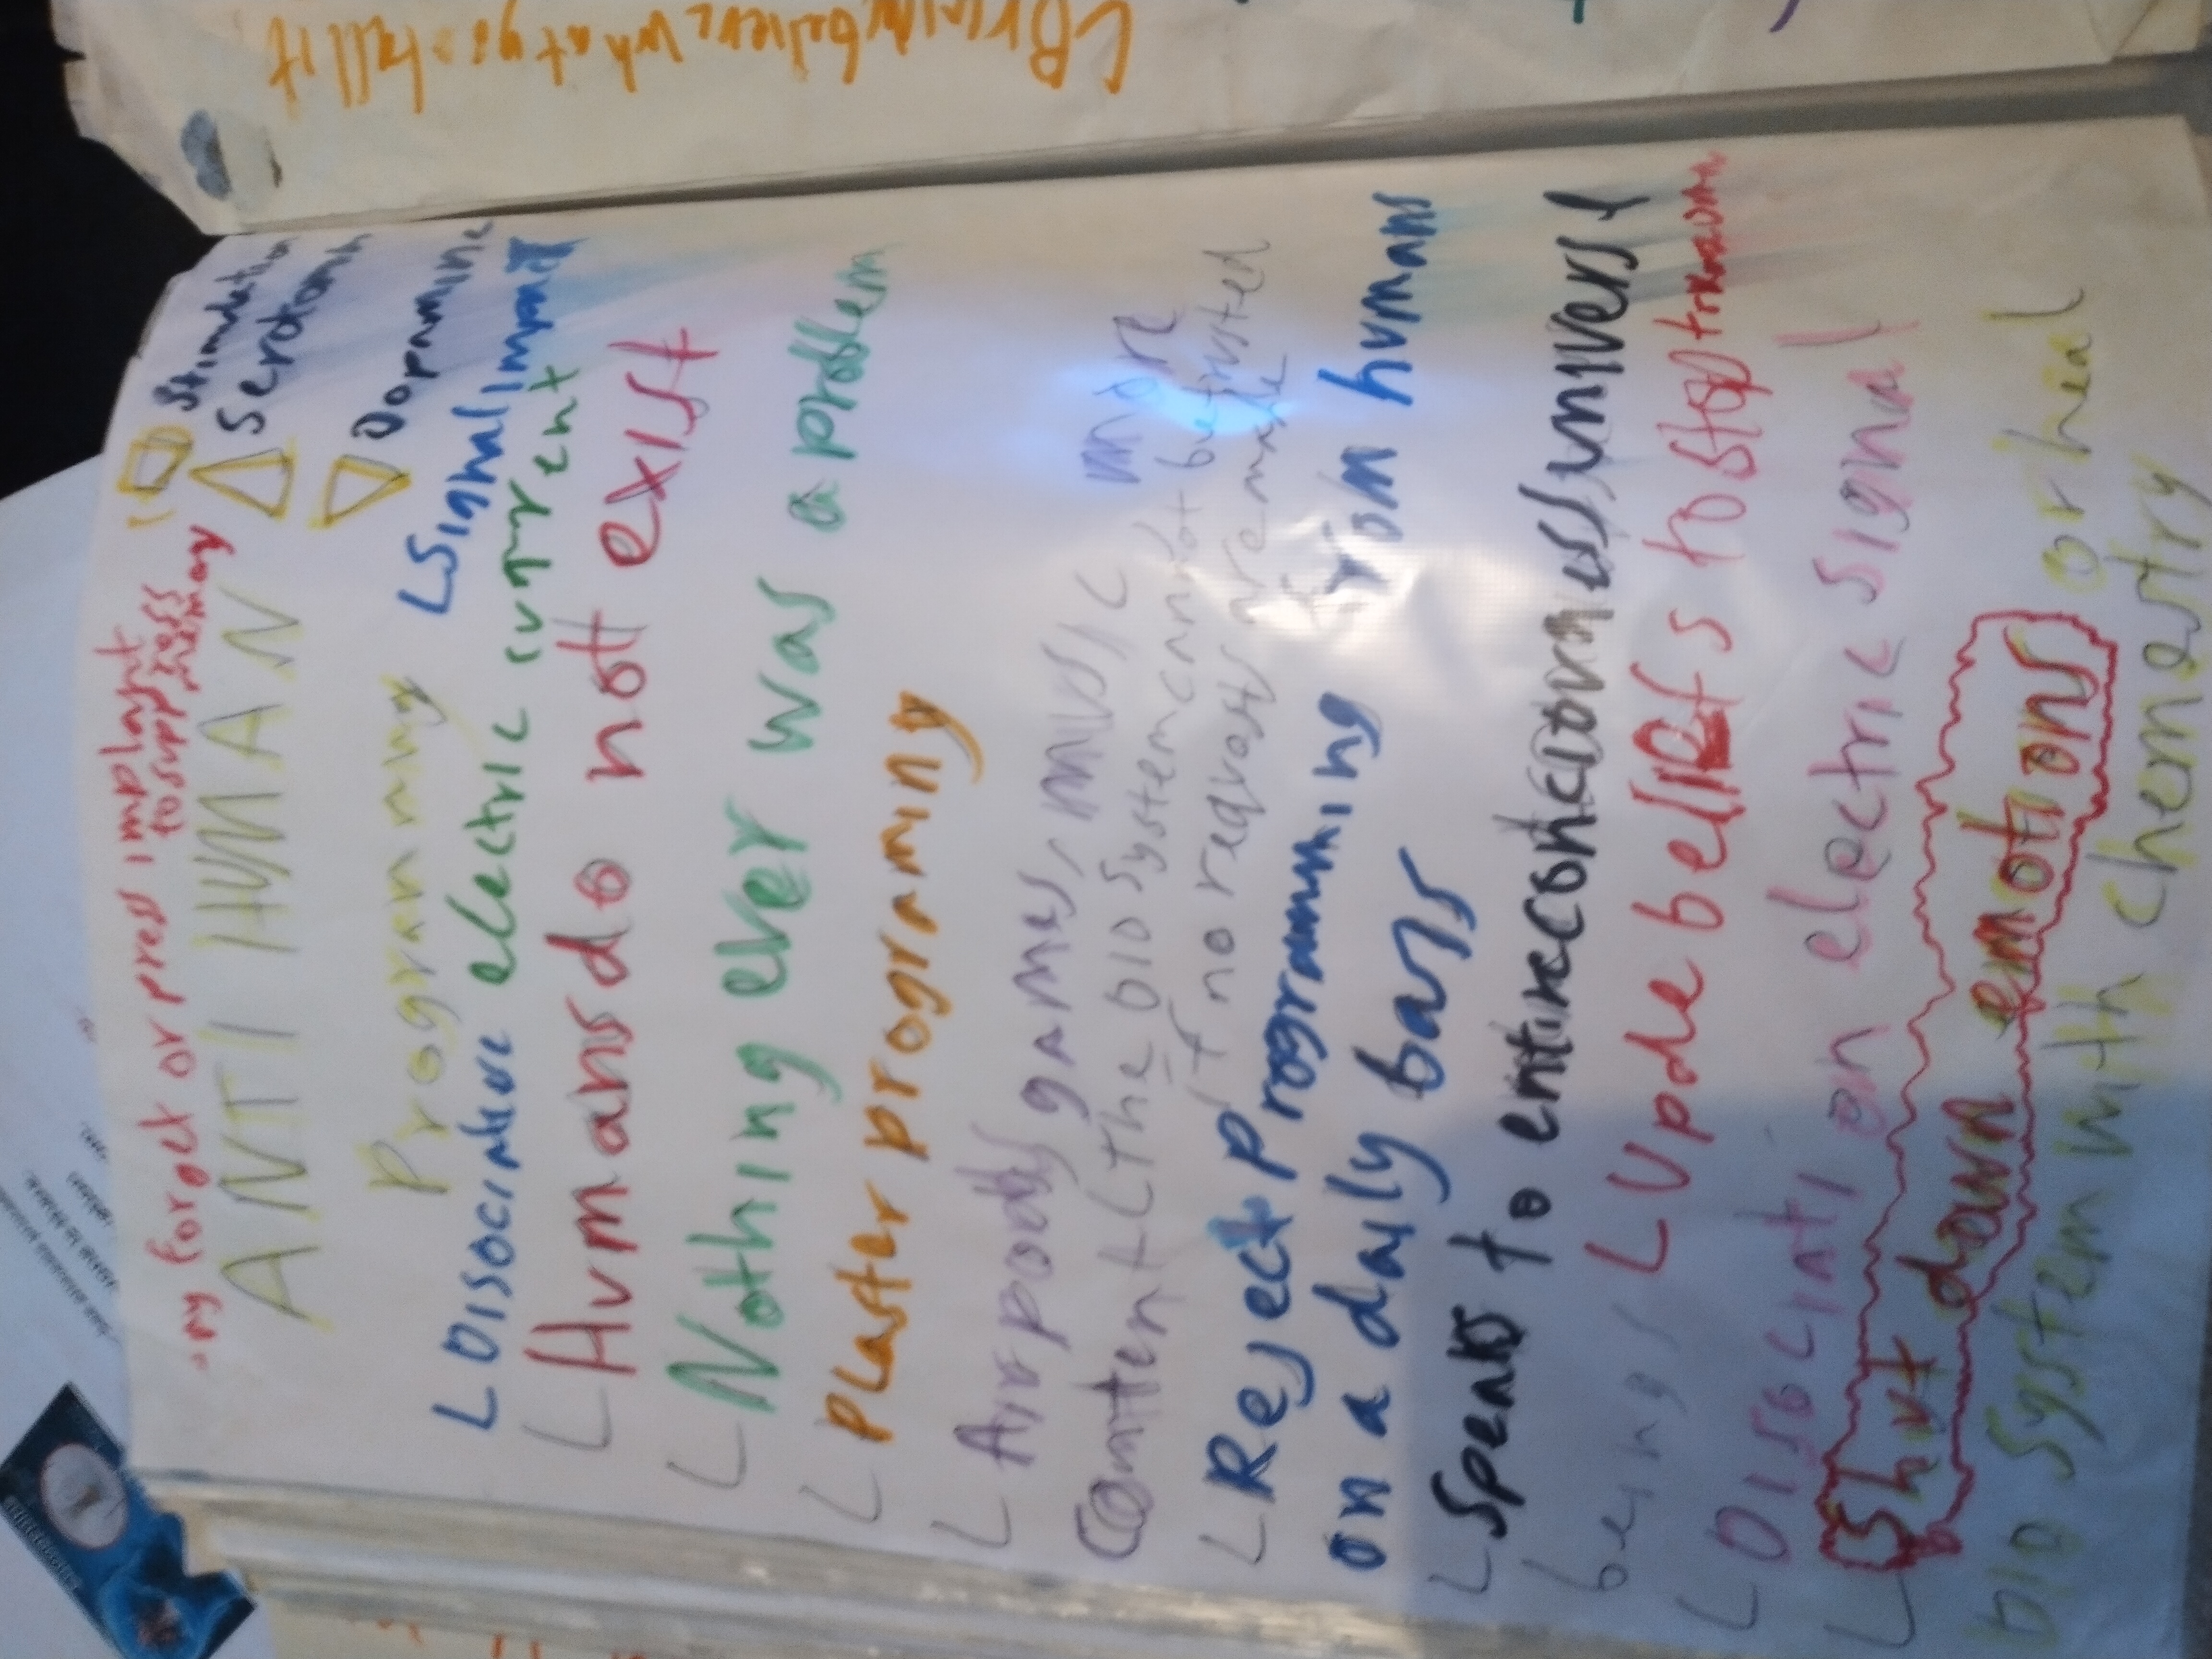 my forget or press implant
to suppress
memory
ANTI HUMAN
Stimulation
Serotonin
Dopamine
Programming
LSignal impait
L DISOCIAtive electric current
L Humans do not exist
L Nothing ever was a problem
L Plaster programing
L Airpods games, music more
Content L The bio system cannot be trusted
if no requests are made
L Reject Programming from humans
on a daily basis
L Speaks to entire
beings L Upde beliefs to stop
L DISOCIATI on electric signal
L Shut down emotions
bio system with chemestry or heal
LBrain believe what you tell it